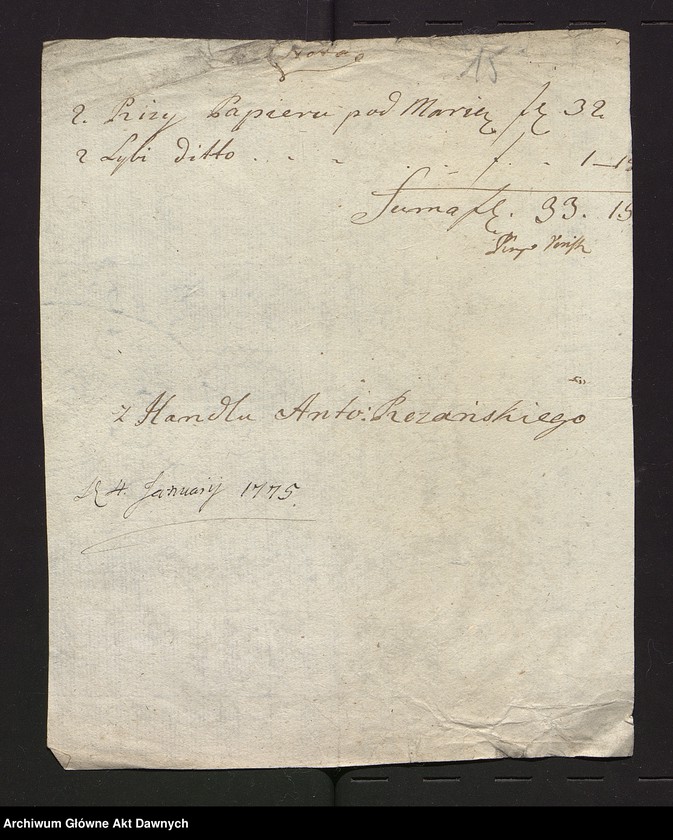 Nota
15
2. Rizy Papieru pod Marią fl 32
2 Lybi ditto . . - . - f. - 1–15
Suma fl. 33. 15
z Handlu Anto: Rezańskiego
4. January 1775.
Archiwum Główne Akt Dawnych